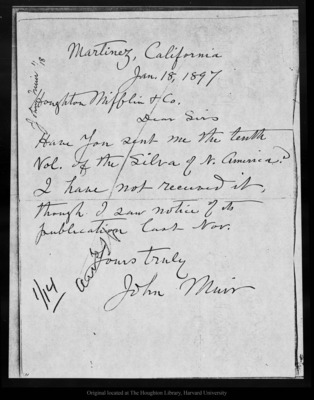 Martinez, California
Jan. 18, 1897
Houghton Mifflin & Co.
Dear Sirs
Have you sent me the tenth
Vol. of the Silva of N. America?
I have not received it,
though I saw notice of its
publication last Nov.
Yours truly
John Muir
1/14
Original located at The Houghton Library, Harvard University